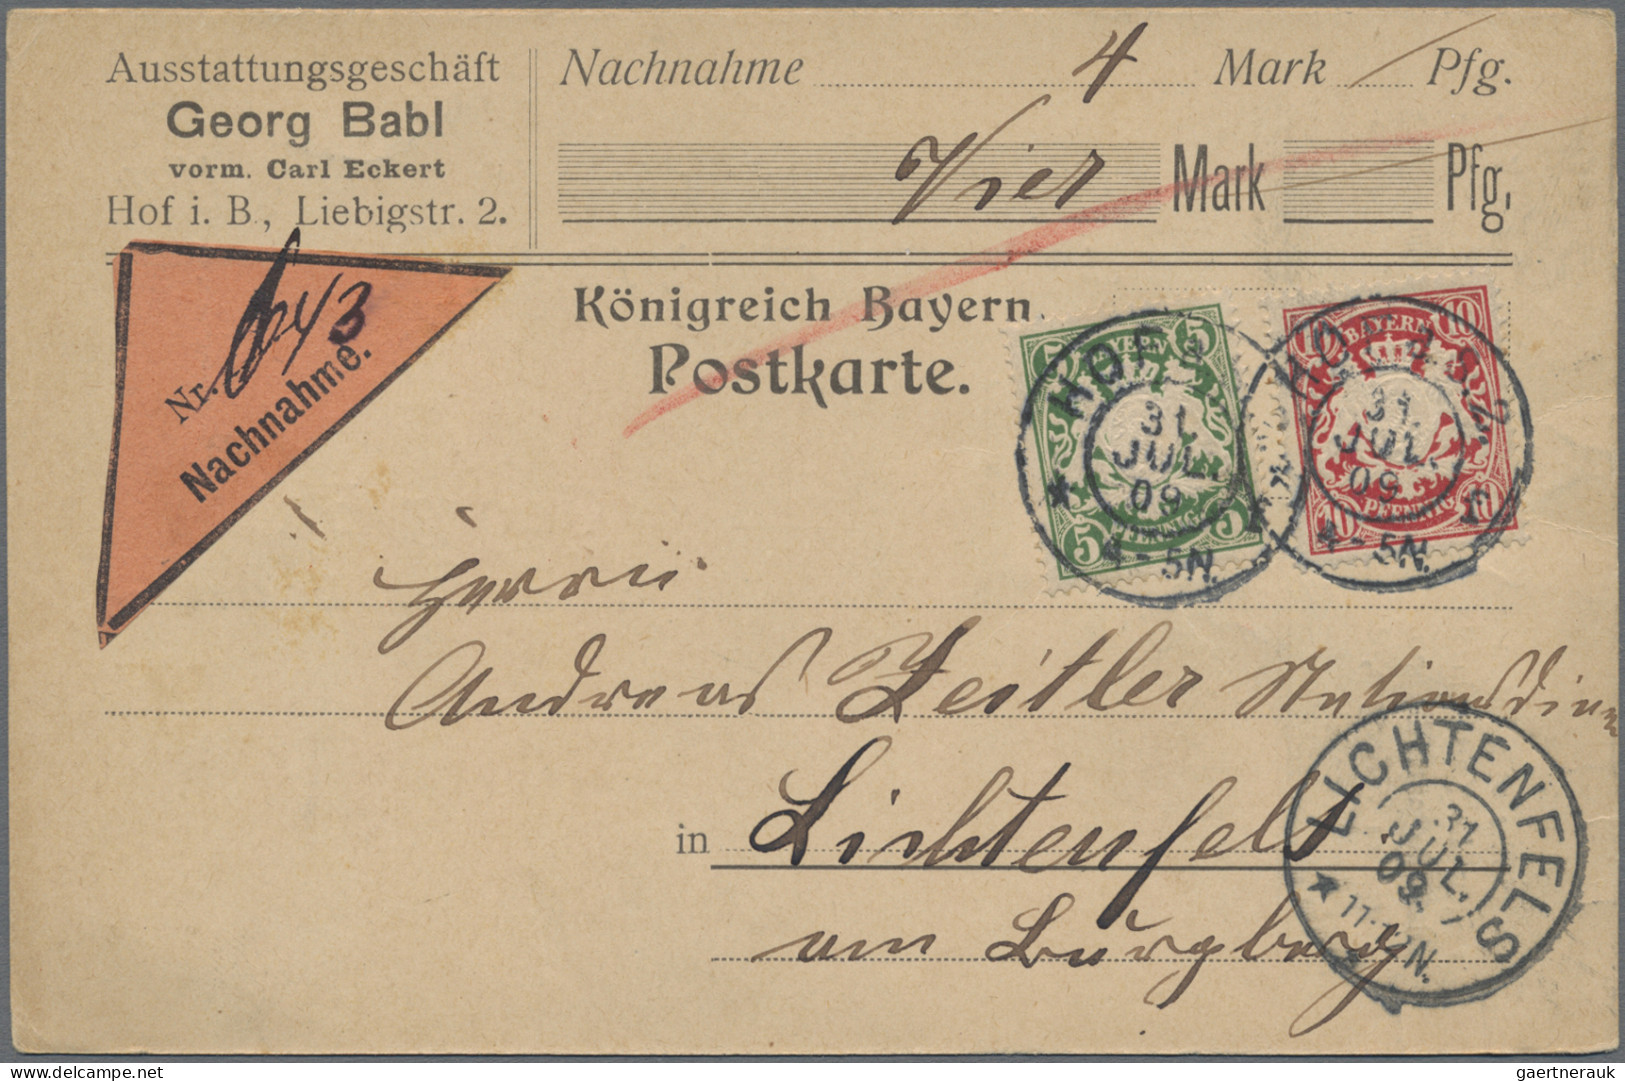 Ausstattungsgeschäft
Georg Babl
vorm. Carl Eckert
Hof i. B., Liebigstr. 2.
Nachnahme 4 Mark Pfg.
Vier Mark Pfg.
Königreich Bayern.
Postkarte.
Nr.
Nachnahme.
5 BAYERN 5
5 PFENNIG 5
10 BAYERN 10
10 PFENNIG 10
HOF
31.
JUL.
09
4-5N.
HOF 2.
31.
JUL.
09
4-5N.
Herrn
Andreas Zeitler Stationsdiener
in Lichtenfels
am Burgberg
LICHTENFELS
31
JUL.
09.
11-12N.
gaertnerauk